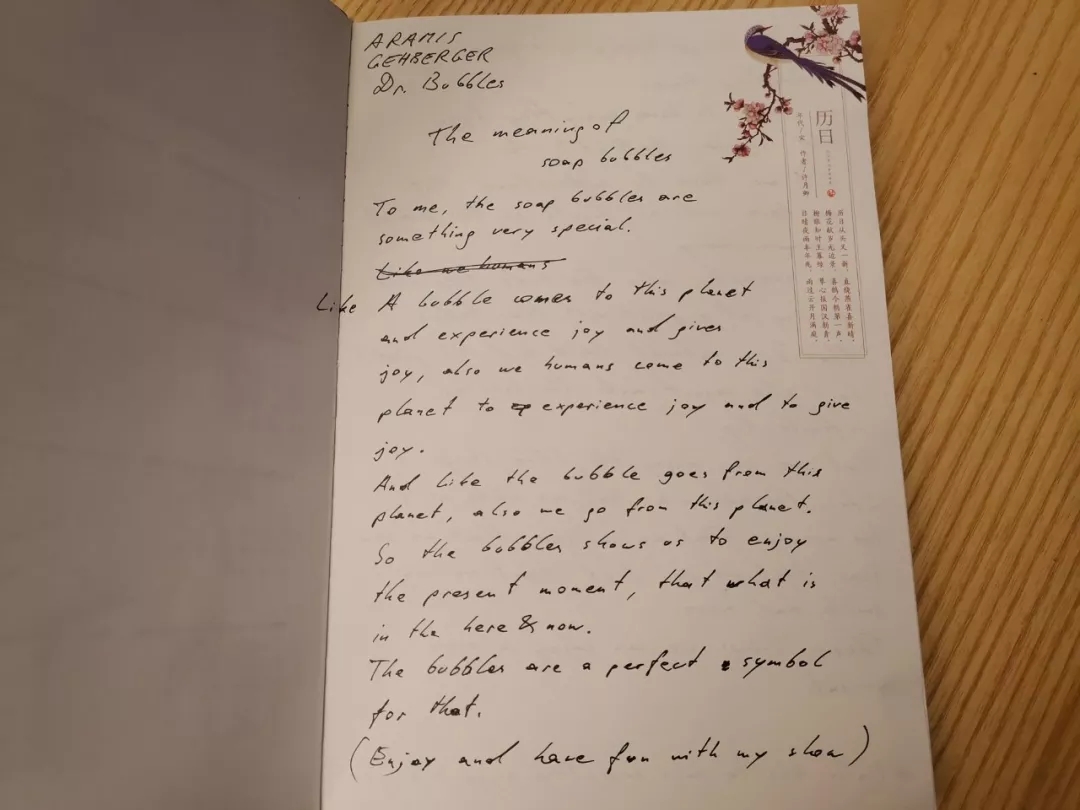 ARAMIS
GEHBERGER
Dr. Bubbles
The meaning of
soap bubbles
To me, the soap bubbles are
something very special.
Like we humans
Like A bubble comes to this planet
and experience joy and gives
joy, also we humans come to this
planet to experience joy and to give
joy.
And like the bubble goes from this
planet, also we go from this planet.
So the bubbles shows us to enjoy
the present moment, that what is
in the here & now.
The bubbles are a perfect symbol
for that.
(Enjoy and have fun with my show)
历日
年代/宋 作者/许月卿
历日从头又一新，直绕燕雀喜新晴。
梅花献岁无边景，喜鹊今朝第一声。